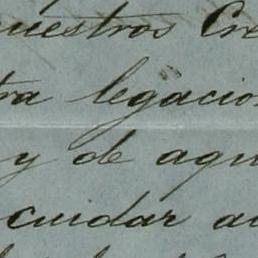 uestros Cre
tra legacio
y de aqu
cuidar a